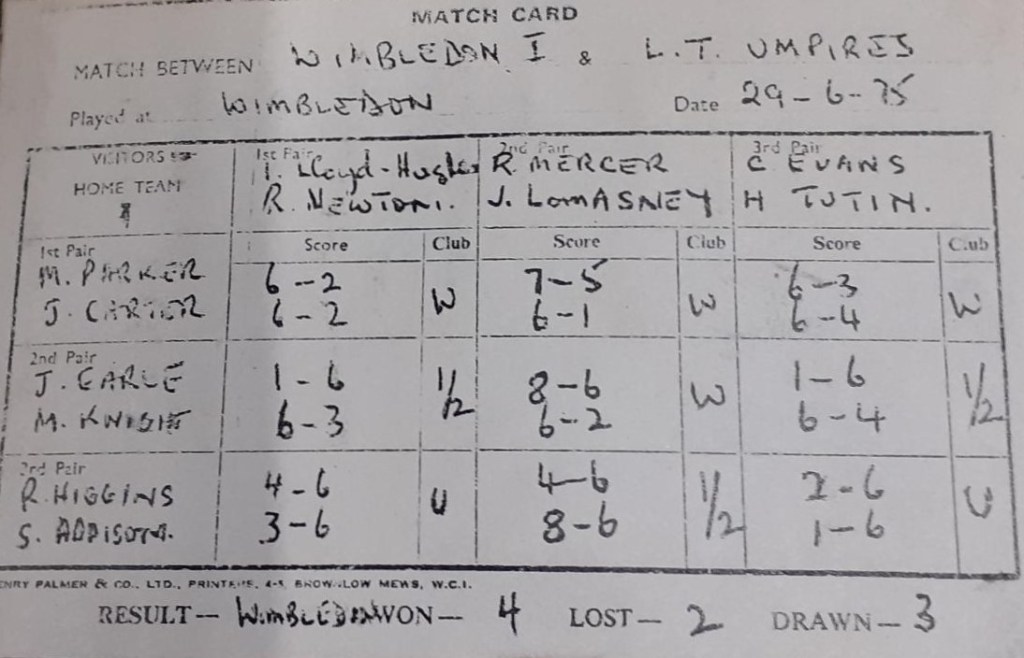 MATCH CARD
MATCH BETWEEN WIMBLEDON I & L.T. UMPIRES
Played at WIMBLEDON Date 29-6-75
VISITORS
HOME TEAM
1st Pair 2nd Pair 3rd Pair
I. Lloyd-Hughes R. MERCER C EVANS
R. NEWTON. J. LOMASNEY H TUTIN.
1st Pair Score Club Score Club Score Club
M. PARKER 6-2 7-5 6-3
J. CARTER 6-2 W 6-1 W 6-4 W
2nd Pair
J. EARLE 1-6 1/2 8-6 W 1-6 1/2
M. KNIGHT 6-3 6-2 6-4
3rd Pair
R. HIGGINS 4-6 U 4-6 1/2 2-6 U
S. ADDISON. 3-6 8-6 1-6
HENRY PALMER & CO., LTD., PRINTERS, 4-5, BROWNLOW MEWS, W.C.1.
RESULT— WIMBLEDON WON— 4 LOST— 2 DRAWN— 3